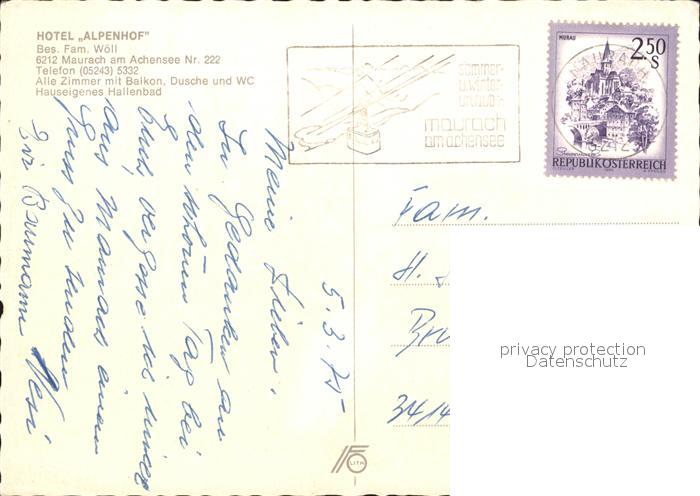 HOTEL „ALPENHOF"
Bes. Fam. Wöll
6212 Maurach am Achensee Nr. 222
Telefon (05243) 5332
Alle Zimmer mit Balkon, Dusche und WC
Hauseigenes Hallenbad
sommer-
u. winter-
urlaub
maurach
am achensee
MURAU
2.50
S
MAURACH
REPUBLIK ÖSTERREICH
5.3.75
Meine Lieben,
In Gedanken an
den schönen Tag bei
Euch vergesse ich nicht
aus Maurach einen
Gruss zu senden
Die Baumann Vesi
Fam.
H.
privacy protection
Datenschutz
FO
LITH